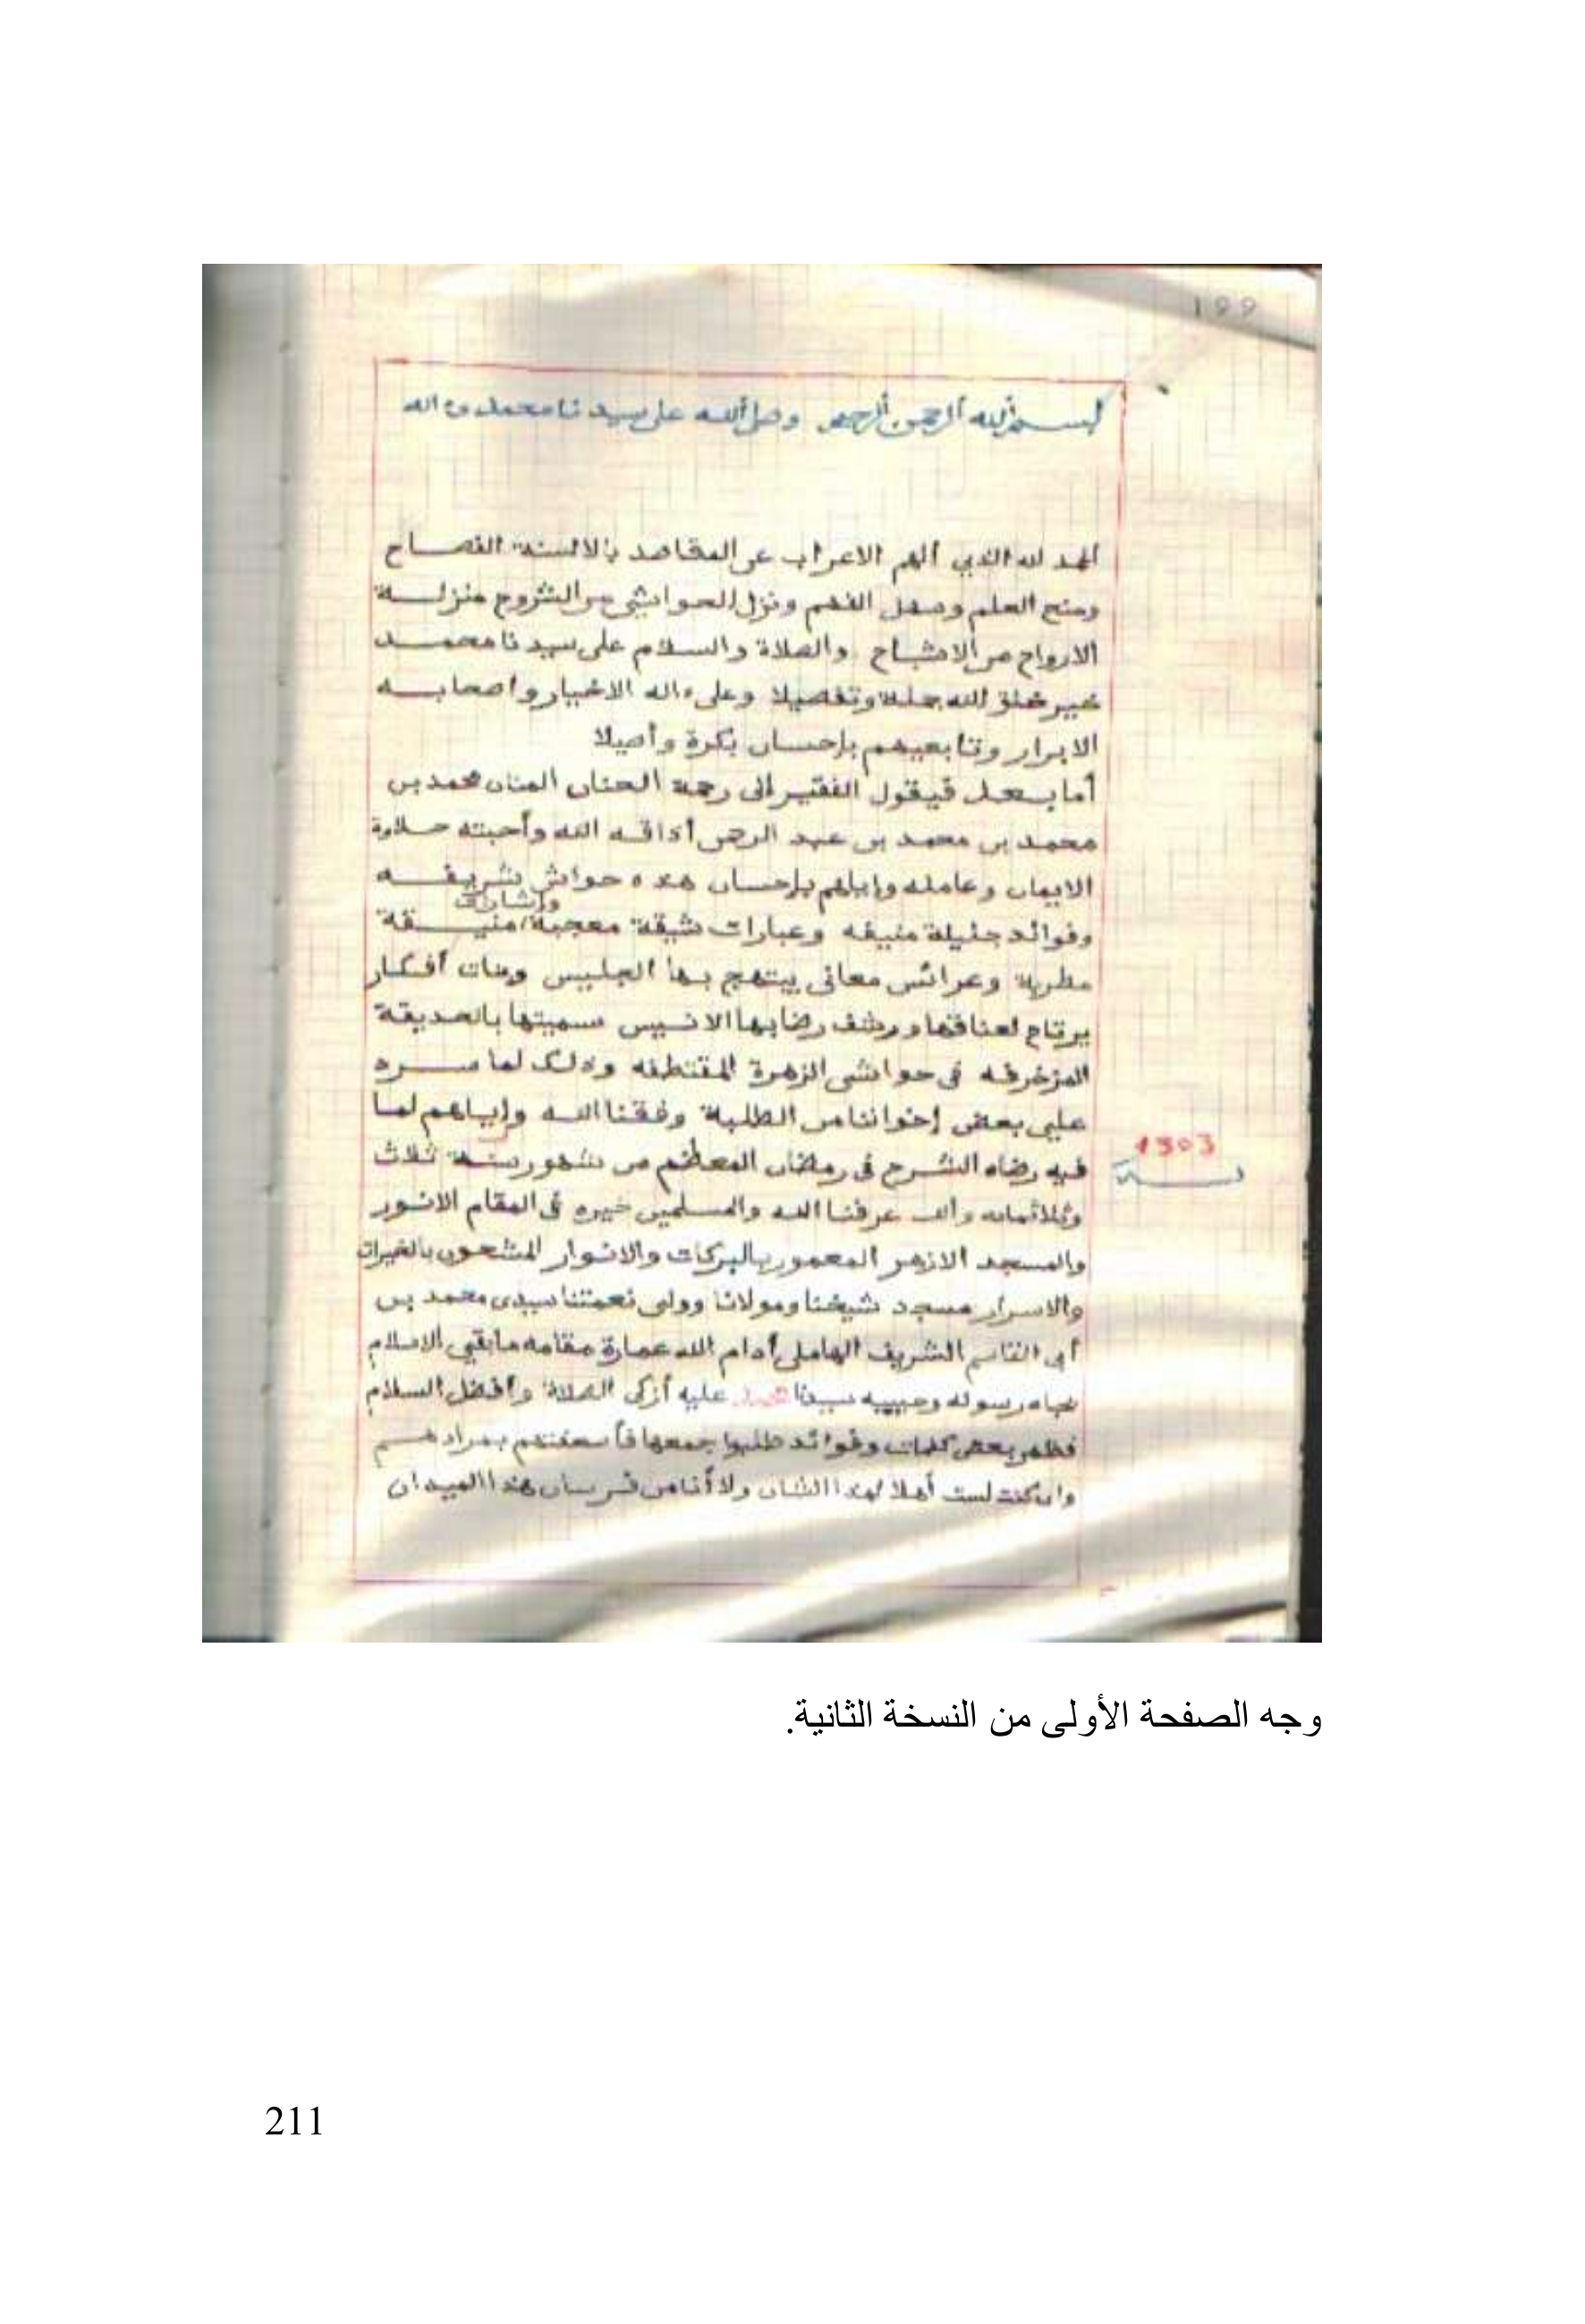 199
بسم الله الرحمن الرحيم وصلى الله على سيدنا محمد وءاله
الحمد لله الذي ألهم الاعراب عن المقاصد بالالسنة الفصاح
ومنح العلم وصقل الفهم ونزل الحواشي من الشروح منزلة
الارواح من الاشباح والصلاة والسلام على سيدنا محمد
خير خلق الله جملة وتفصيلا وعلى ءاله الاخيار واصحابه
الابرار وتابعيهم بإحسان بكرة وأصيلا
أما بعد فيقول الفقير إلى رحمة الحنان المنان محمد بن
محمد بن محمد بن عبد الرحمن أذاقه الله وأحبته حلاوة
الايمان وعامله وإياهم بإحسان هذه حواش شريفه
وإشارات
وفوائد جليلة منيفه وعبارات شيقة معجبة منيقة
مطربة وعرائس معاني يبتهج بها الجليس وبنات أفكار
يرتاح لعناقها ورشف رضابها الانيس سميتها بالحديقة
المزخرفه في حواشي الزهرة المقتطفه وذلك لما سره
علي بعض إخواننا من الطلبة وفقنا الله وإياهم لما
فيه رضاه الشرح في رمضان المعظم من شهور سنة ثلاث
1303
سنة
وثلاثمائه وألف عرفنا الله والمسلمين خيره في المقام الانور
والمسجد الازهر المعمور بالبركات والانوار المشحون بالخيرات
والاسرار مسجد شيخنا ومولانا وولي نعمتنا سيدي محمد بن
أبي القاسم الشريف الهاملي أدام الله عمارة مقامه ما بقي الاسلام
بجاه رسوله وحبيبه سيدنا محمد عليه أزكى الصلاة وأفضل السلام
فظهر بعض كلمات وفوائد طلبوا جمعها فأسعفتهم بمرادهم
وان كنت لست أهلا لهذا الشان ولا أنا من فرسان هذا الميدان
وجه الصفحة الأولى من النسخة الثانية.
211